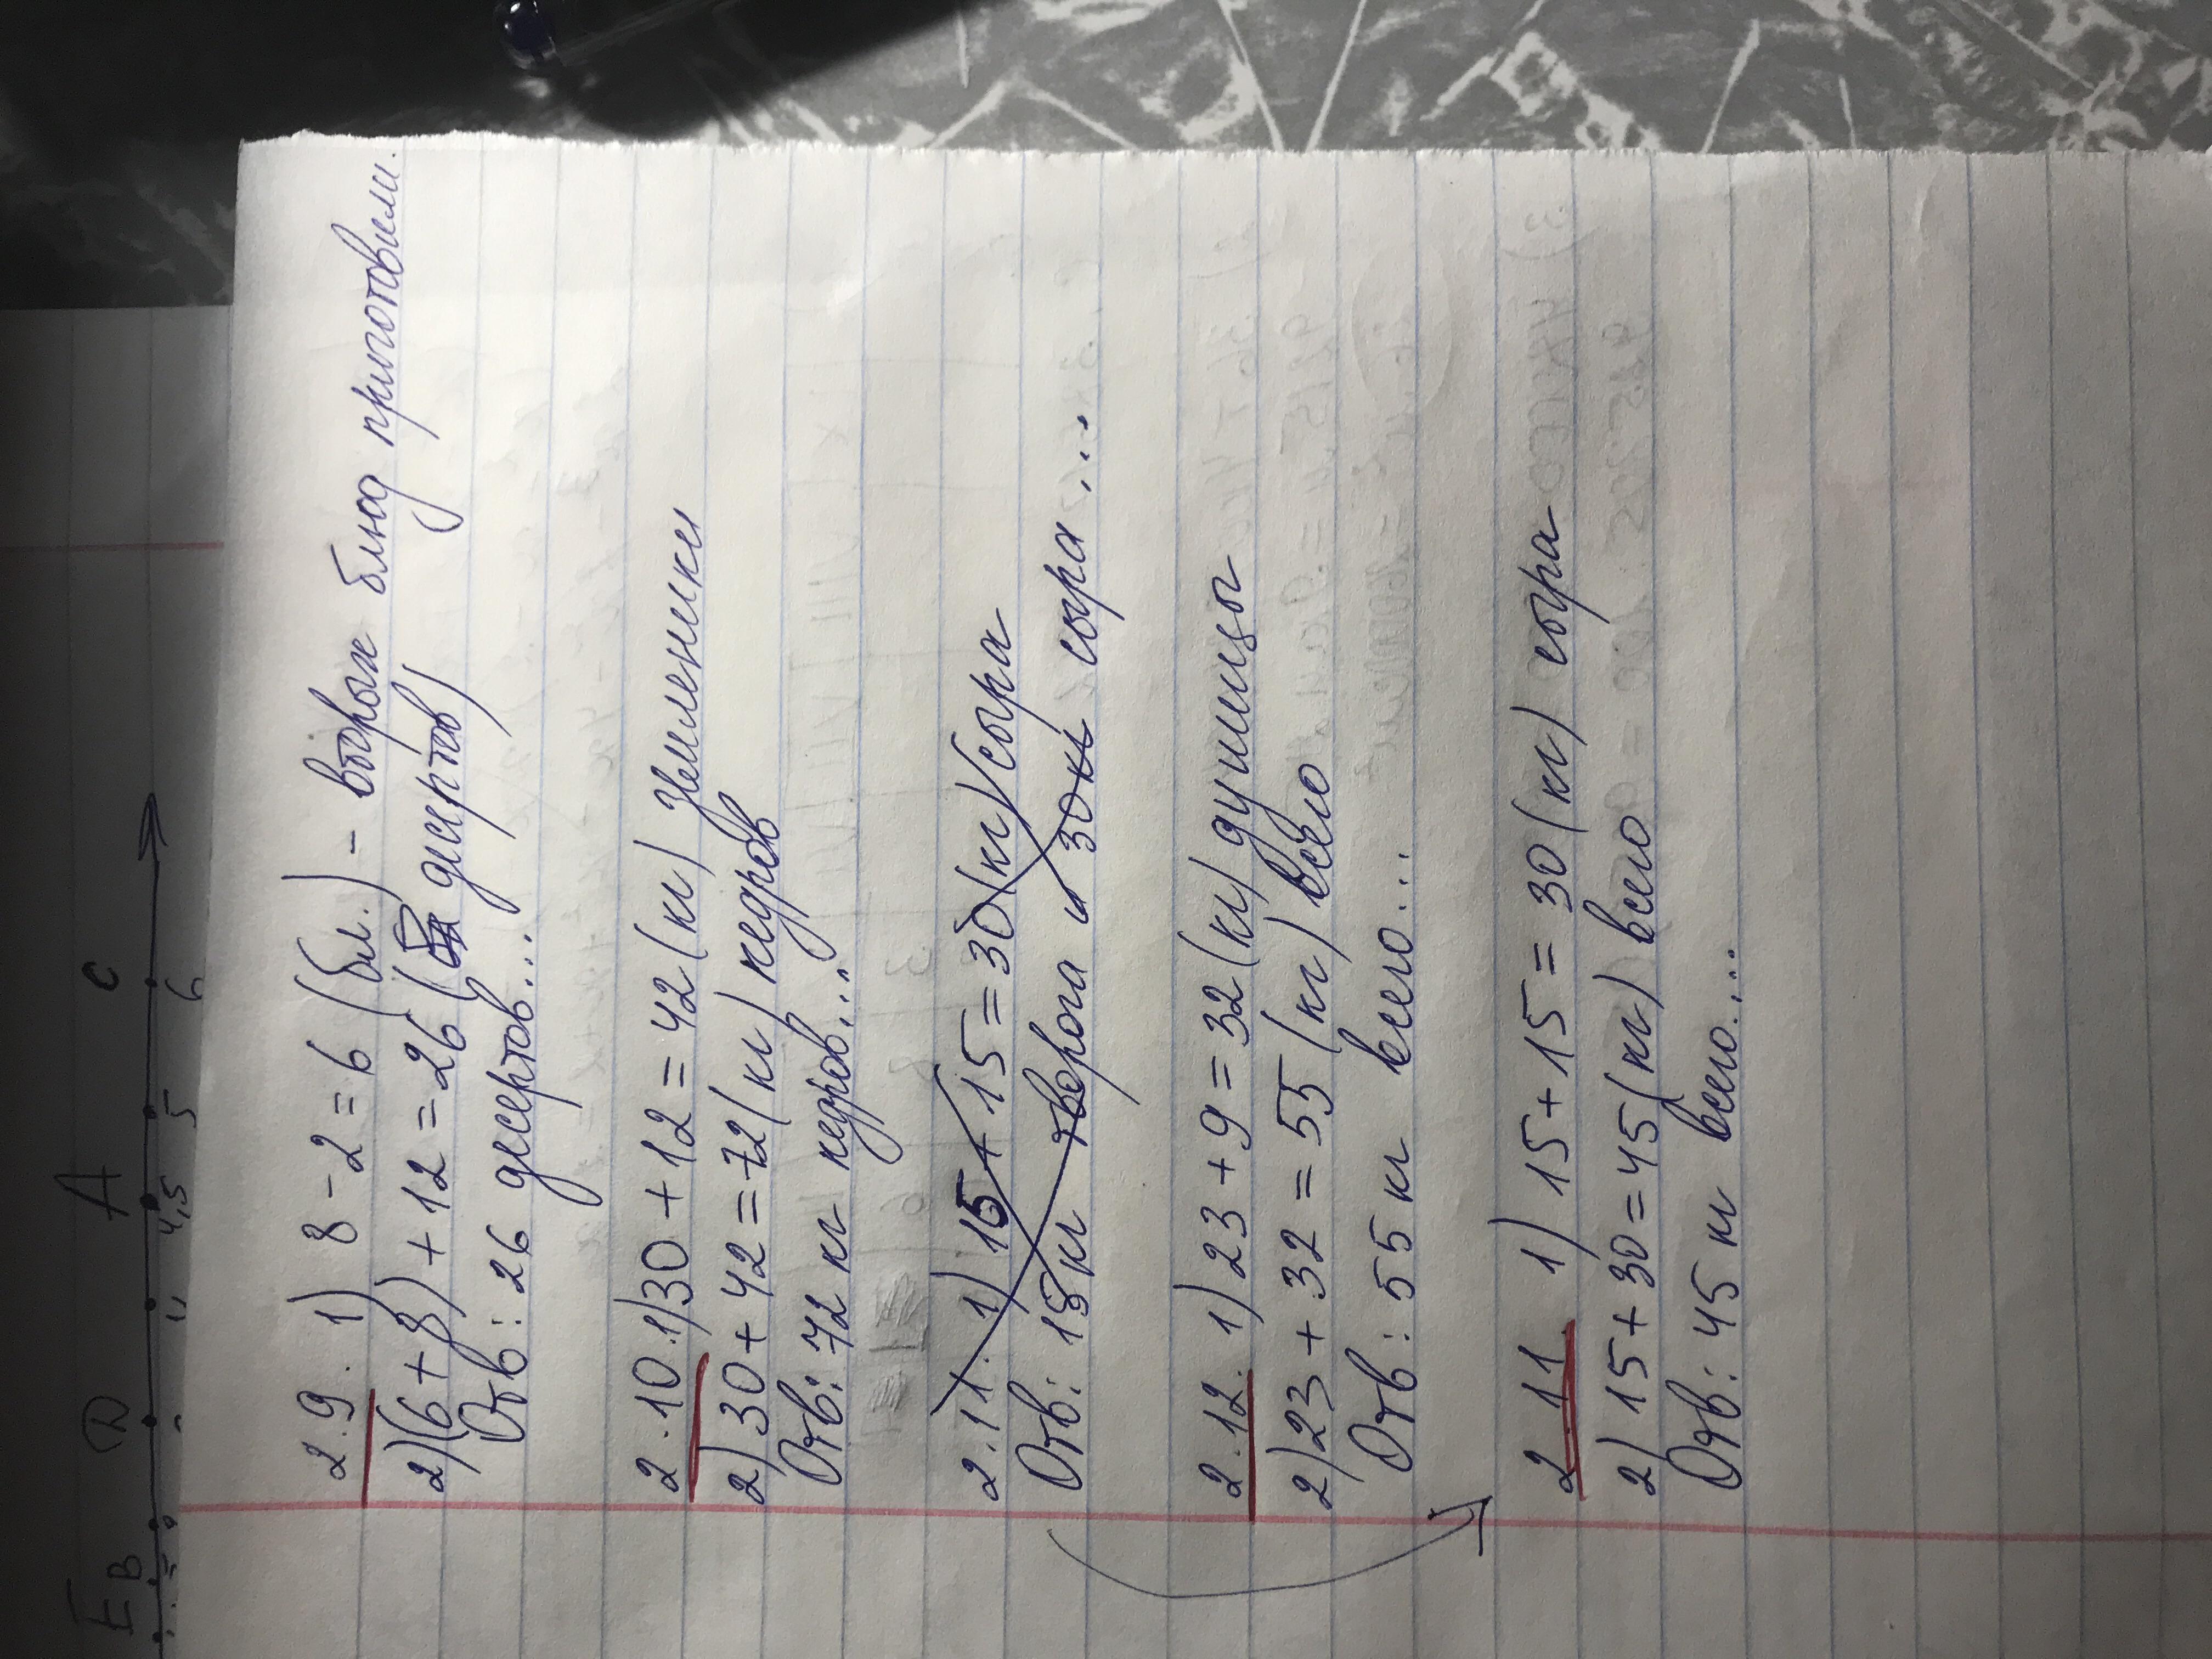 E B D A C
4 4,5 5 6
2.9. 1) 8 - 2 = 6 (бл.) - вторых блюд приготовили.
2) (6 + 8) + 12 = 26 (десертов)
Отв: 26 десертов...
2.10. 1) 30 + 12 = 42 (кг) земленики
2) 30 + 42 = 72 (кг) кедров
Отв: 72 кг кедров...
2.11. 1) 15 + 15 = 30 (кг) сыра
Отв: 15 кг творога и 30 кг сыра ...
2.12. 1) 23 + 9 = 32 (кг) душицы
2) 23 + 32 = 55 (кг) всего
Отв: 55 кг всего...
2.11 1) 15 + 15 = 30 (кг) сыра
2) 15 + 30 = 45 (кг) всего
Отв: 45 кг всего...